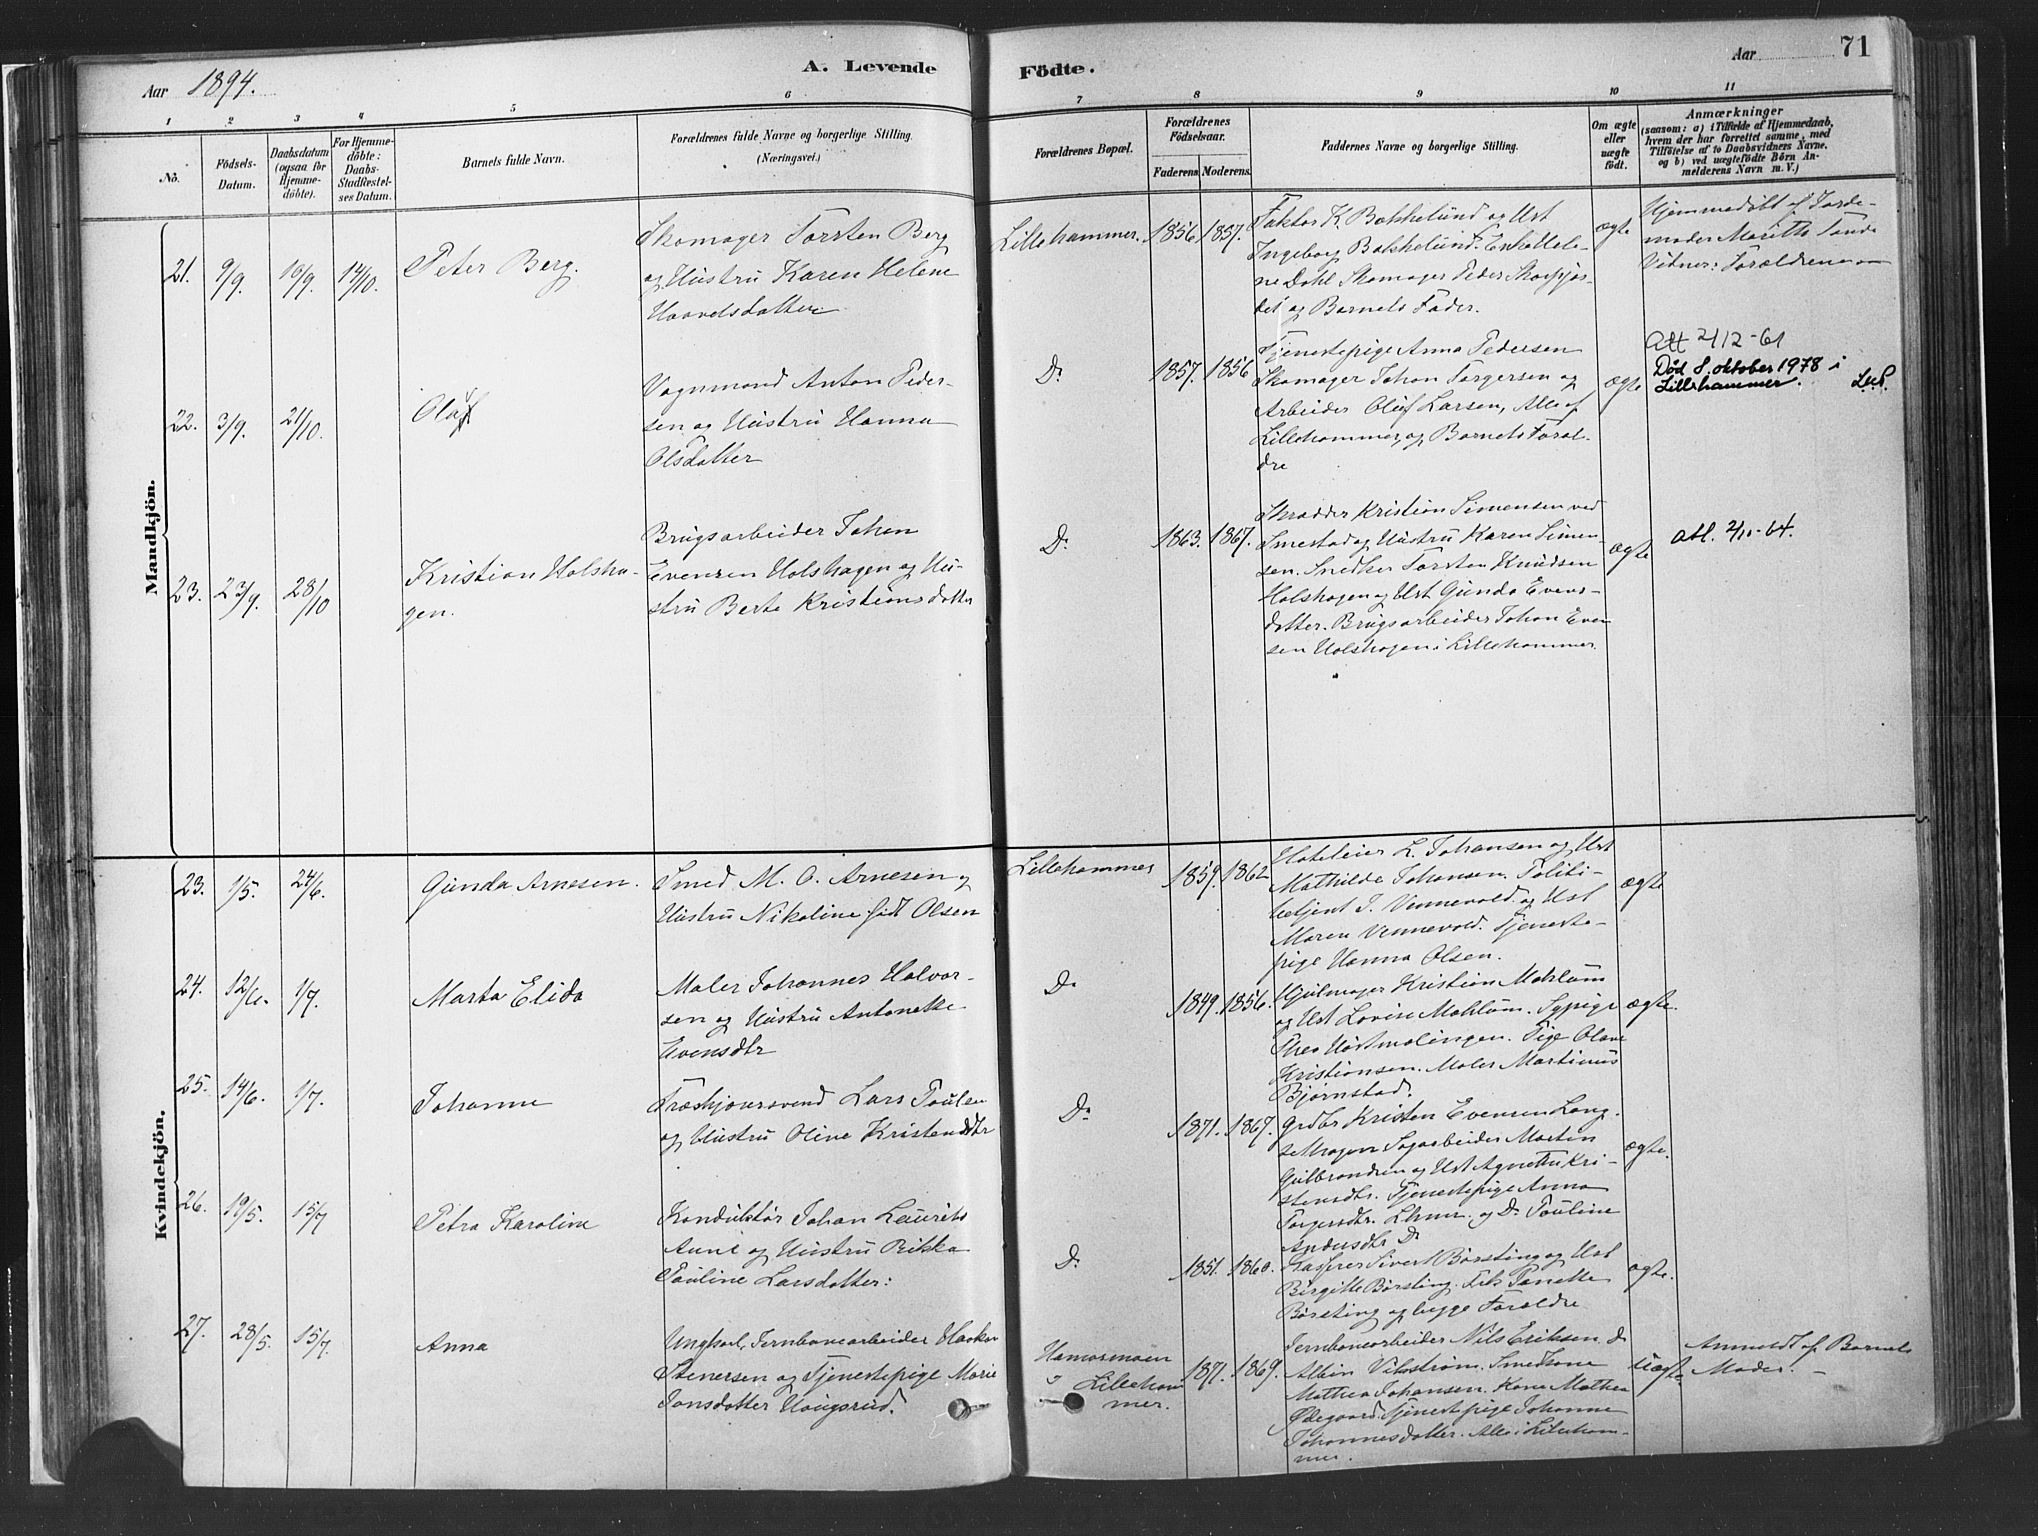 Aar 1894.
A. Levende Födte.
Aar 71
1 2 3 4 5 6 7 8 9 10 11
No.
Födsels-Datum.
Daabsdatum (ogsaa for Hjemmedöbte).
For Hjemmedöbte: Daabs-Stadfæstelses Datum.
Barnets fulde Navn.
Forældrenes fulde Navne og borgerlige Stilling. (Næringsvei.)
Forældrenes Bopæl.
Forældrenes Födselsaar.
Faderens. Moderens.
Faddernes Navne og borgerlige Stilling.
Om ægte eller uægte födt.
Anmærkninger
(saasom: a) i Tilfælde af Hjemmedaab, hvem der har forrettet samme, med Tilföielse af to Daabsvidners Navne. og b) ved uægtefödte Börn Anmelderens Navn m. V.)
Mandkjön.
21. 9/9. 16/9. 14/10. Peter Berg.
Skomager Torsten Berg
og Hustru Karen Helene
Haavelsdatter.
Lillehammer. 1856 1857.
Faktor K. Bakkelund og Hst
Ingeborg Bakkelund. Enke Hele-
ne Dahl Skomager Peder
og Barnets Fader.
ægte
Hjemmedöbt af Jorde-
moder
Vidner: Forældrene
22. 3/9. 21/10. Olaf
Vognmand Anton Peder-
sen og Hustru Hanna
Olsdatter
Do 1857. 1856
Tjenestepige Anna Pedersen
Skomager Johan Torgersen og
Arbeider Oluf Larsen, Alle af
Lillehammer, og Barnets Foræl-
dre
ægte
Att 2/12-61
Död 8. oktober 1978 i
Lillehammer.
23. 23/9. 28/10 Kristian Holsha-
gen.
Brugsarbeider Johan
Evensen Holshagen og Hu-
stru Berte Kristiansdatter
Do 1863. 1867.
Skrædder Kristian Simensen ved
Smestad og Hustru Karen Simen-
sen. Snedker Torsten Knudsen
Holshagen og Hst Gunda Evens-
datter. Brugsarbeider Johan Even
sen Holshagen i Lillehammer.
ægte
att. 2/11-64.
Kvindekjön.
23. 1/5. 24/6. Gunda Arnesen.
Smed M. O. Arnesen og
Hustru Nikoline født Olsen
Lillehammer 1859. 1862
Hoteleier L. Johansen og Hst
Mathilde Johansen. Politi-
betjent J. Vennevold. og Hst
Maren Vennevold. Tjeneste-
pige Hanna Olsen.
ægte
24. 12/6. 1/7. Marta Elida
Maler Johannes Halvor-
sen og Hustru Antonette
Evensdtr
Do 1849. 1856.
Hjulmager Kristian Mæhlum
og Hst Lovise Mæhlum. Sypige
Thea Høstmælingen. Pige Olave
Kristiansen. Maler Martinus
Bjørnstad.
ægte.
25. 14/6. 1/7. Johanne
Træskjærersvend Lars Poulsen
og Hustru Oline Kristensdtr
Do 1871. 1867.
Grdbr Kristen Evensen Lang-
sethagen Sagarbeider Morten
Gulbrandsen og Hst Agnethe Kri-
stensdtr. Tjenestepige Anna
Torgersdtr. Lhmr. og Do Pauline
Andersdtr Do
ægte.
26. 19/5. 15/7 Petra Karoline
Konduktør Johan Laurits
Aune og Hustru Rikka
Pauline Larsdatter:
Do 1851. 1860.
Kasserer Sivert Børsting og Hst
Birgitte Børsting. Frk Tanette
Børsting og begge Forældre
ægte.
27. 28/5. 15/7. Anna
Ungkarl, Jernbanearbeider Haakon
Stenersen og Tjenestepige Marie
Jonsdatter Haugsrud.
Hammermoen
i Lilleham
mer.
1871. 1869.
Jernbanearbeider Nils Eriksen. do
Albin Vikstrøm. Smedkone
Mathea Johansen. Kone Mathea
Ødegaard. Tjenestepige Johanne
Johannesdatter. Alle i Lilleham-
mer.
uægte
Anmeldt af Barnets
Moder. -